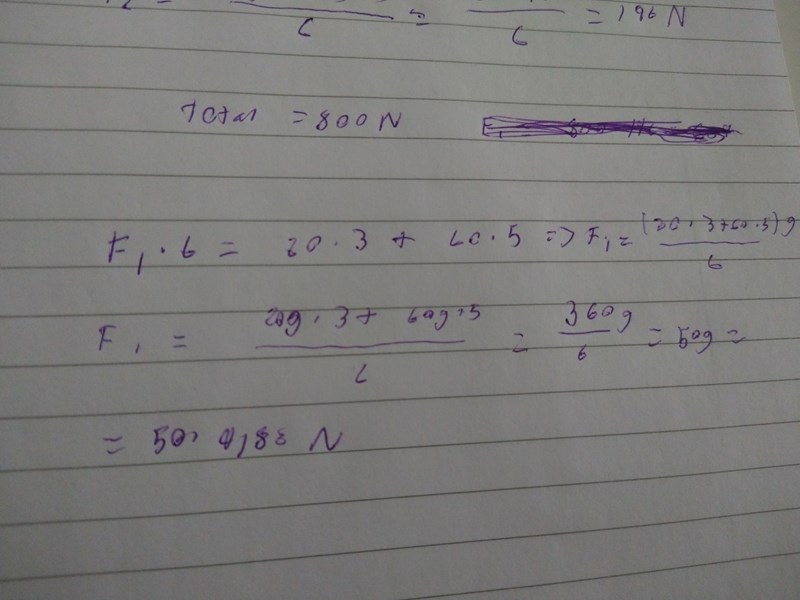 6 = 6 = 196 N
Total = 800 N
F₁ · 6 = 20 · 3 + 60 · 5 => F₁ = (20 · 3 + 60 · 5) g / 6
F₁ = 20g · 3 + 60g · 5 / 6 = 360g / 6 = 50g =
= 50 · 9,82 N